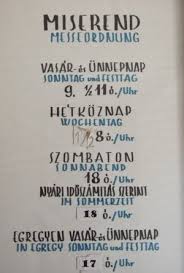 MISEREND
MESSEORDNUNG
VASÁR- ÉS ÜNNEPNAP
SONNTAG und FESTTAG
9. ½11 ó./Uhr
HÉTKÖZNAP
WOCHENTAG
8 ó./Uhr
SZOMBATON
SONNABEND
18 ó./Uhr
NYÁRI IDŐSZÁMITÁS SZERINT
IM SOMMERZEIT
18 ó./Uhr
EGREGYEN VASÁR ÉS ÜNNEPNAP
IN EGREGY SONNTAG und FESTTAG
17 ó./Uhr